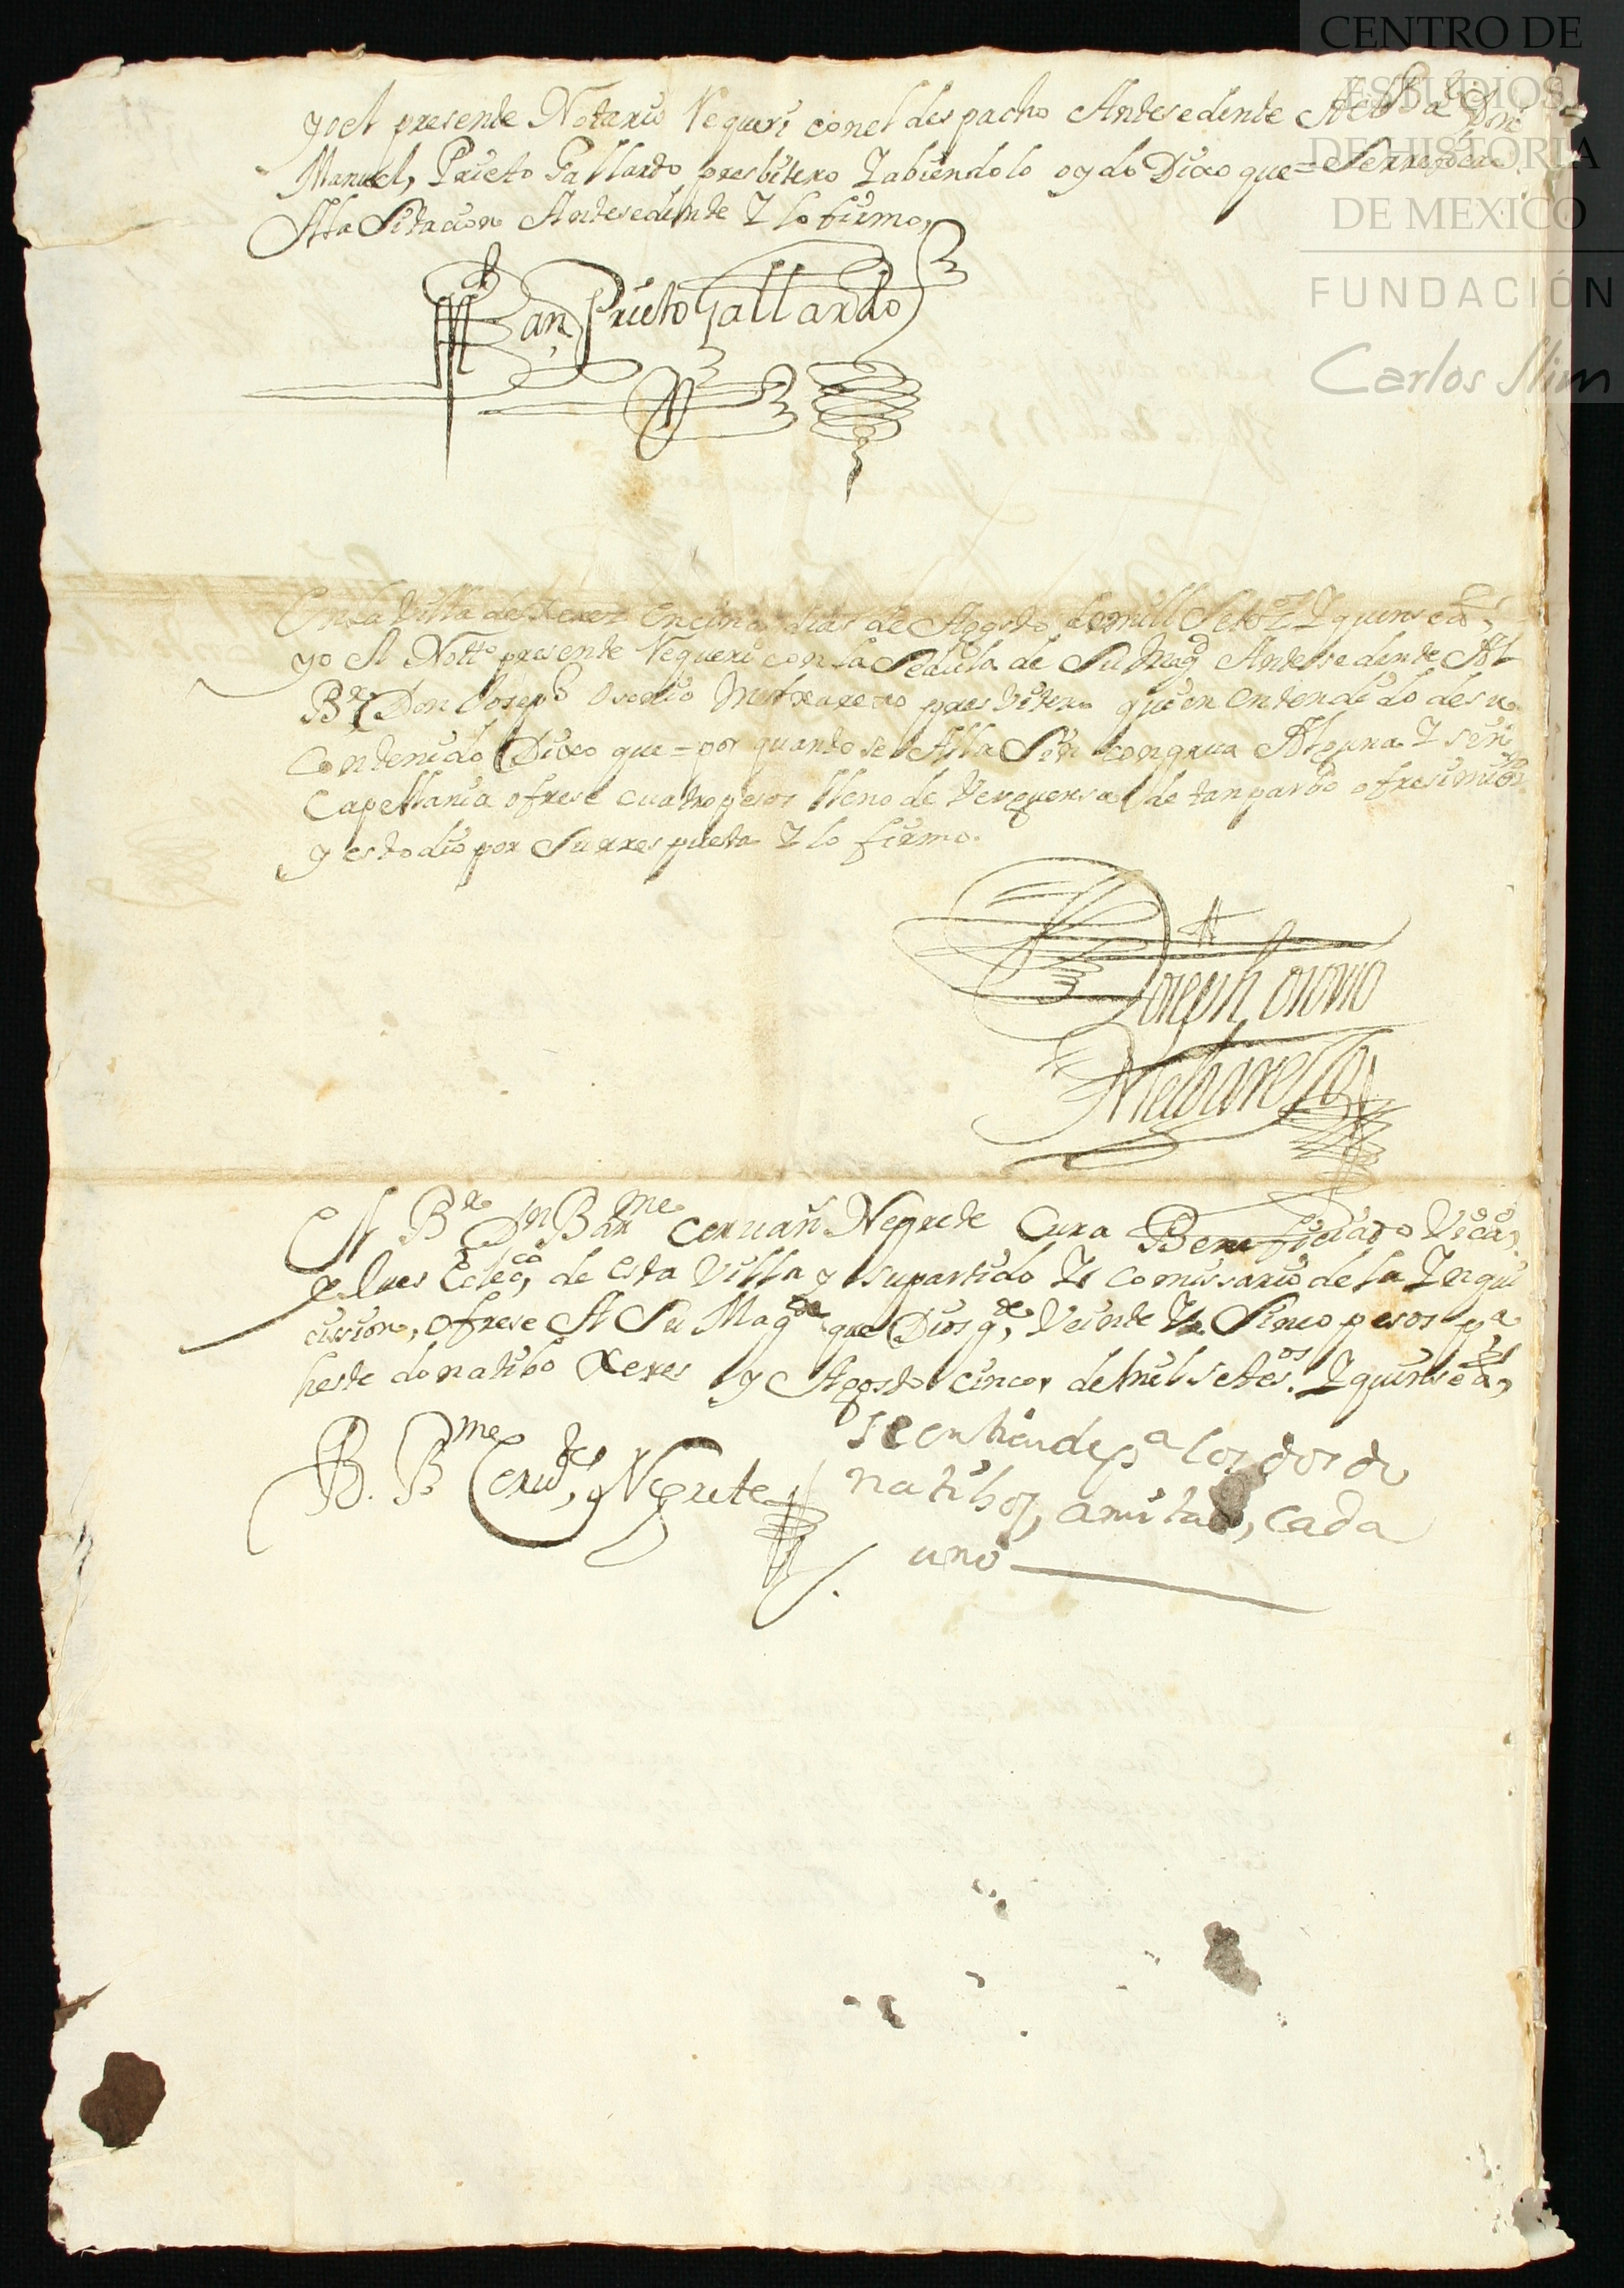 CENTRO DE
ESTUDIOS
DE HISTORIA
DE MEXICO
FUNDACIÓN
Carlos Slim
yo el presente Notario Requeri con el despacho Antesedente Al Don
Manuel, Prieto Gallardo presbitero Y abiendolo oydo Dixo que=
Ala Sitacion Antesedente Y lo firmo,
Man Prieto Gallardo
En la Villa de Xerez En cinco dias de Agosto de mill Setos Y quinse as,
yo El Notto presente Requeri con la Sedula de Su Magd Antesedente Al
Br Don Joseph Osorio presvitero que en entendido de su
Contenido Dixo que = por quanto se Alla Sin congrua Alguna Y sin
Capellania ofrese cuatro pesos lleno de Verguensa de tan parbo ofresimiento
y esto dio por Su rrespuesta Y lo firmo.
Joseph Osorio
El Br Dn Barme Cervan Negrete Cura Beneficiado Vicao,
Jues Ecleco, de esta Villa y su partido Y comissario de la Ynqui
cission, ofrese A Su Magde que Dios ge, Veinte Y Sinco pesos pa
heste donatibo Xeres y Agosto cinco, de mil setesos. Y quinse as,
B. Bme Cervtes, Negrete
se entiende pa los dos do
natibos, a mitad, cada
uno